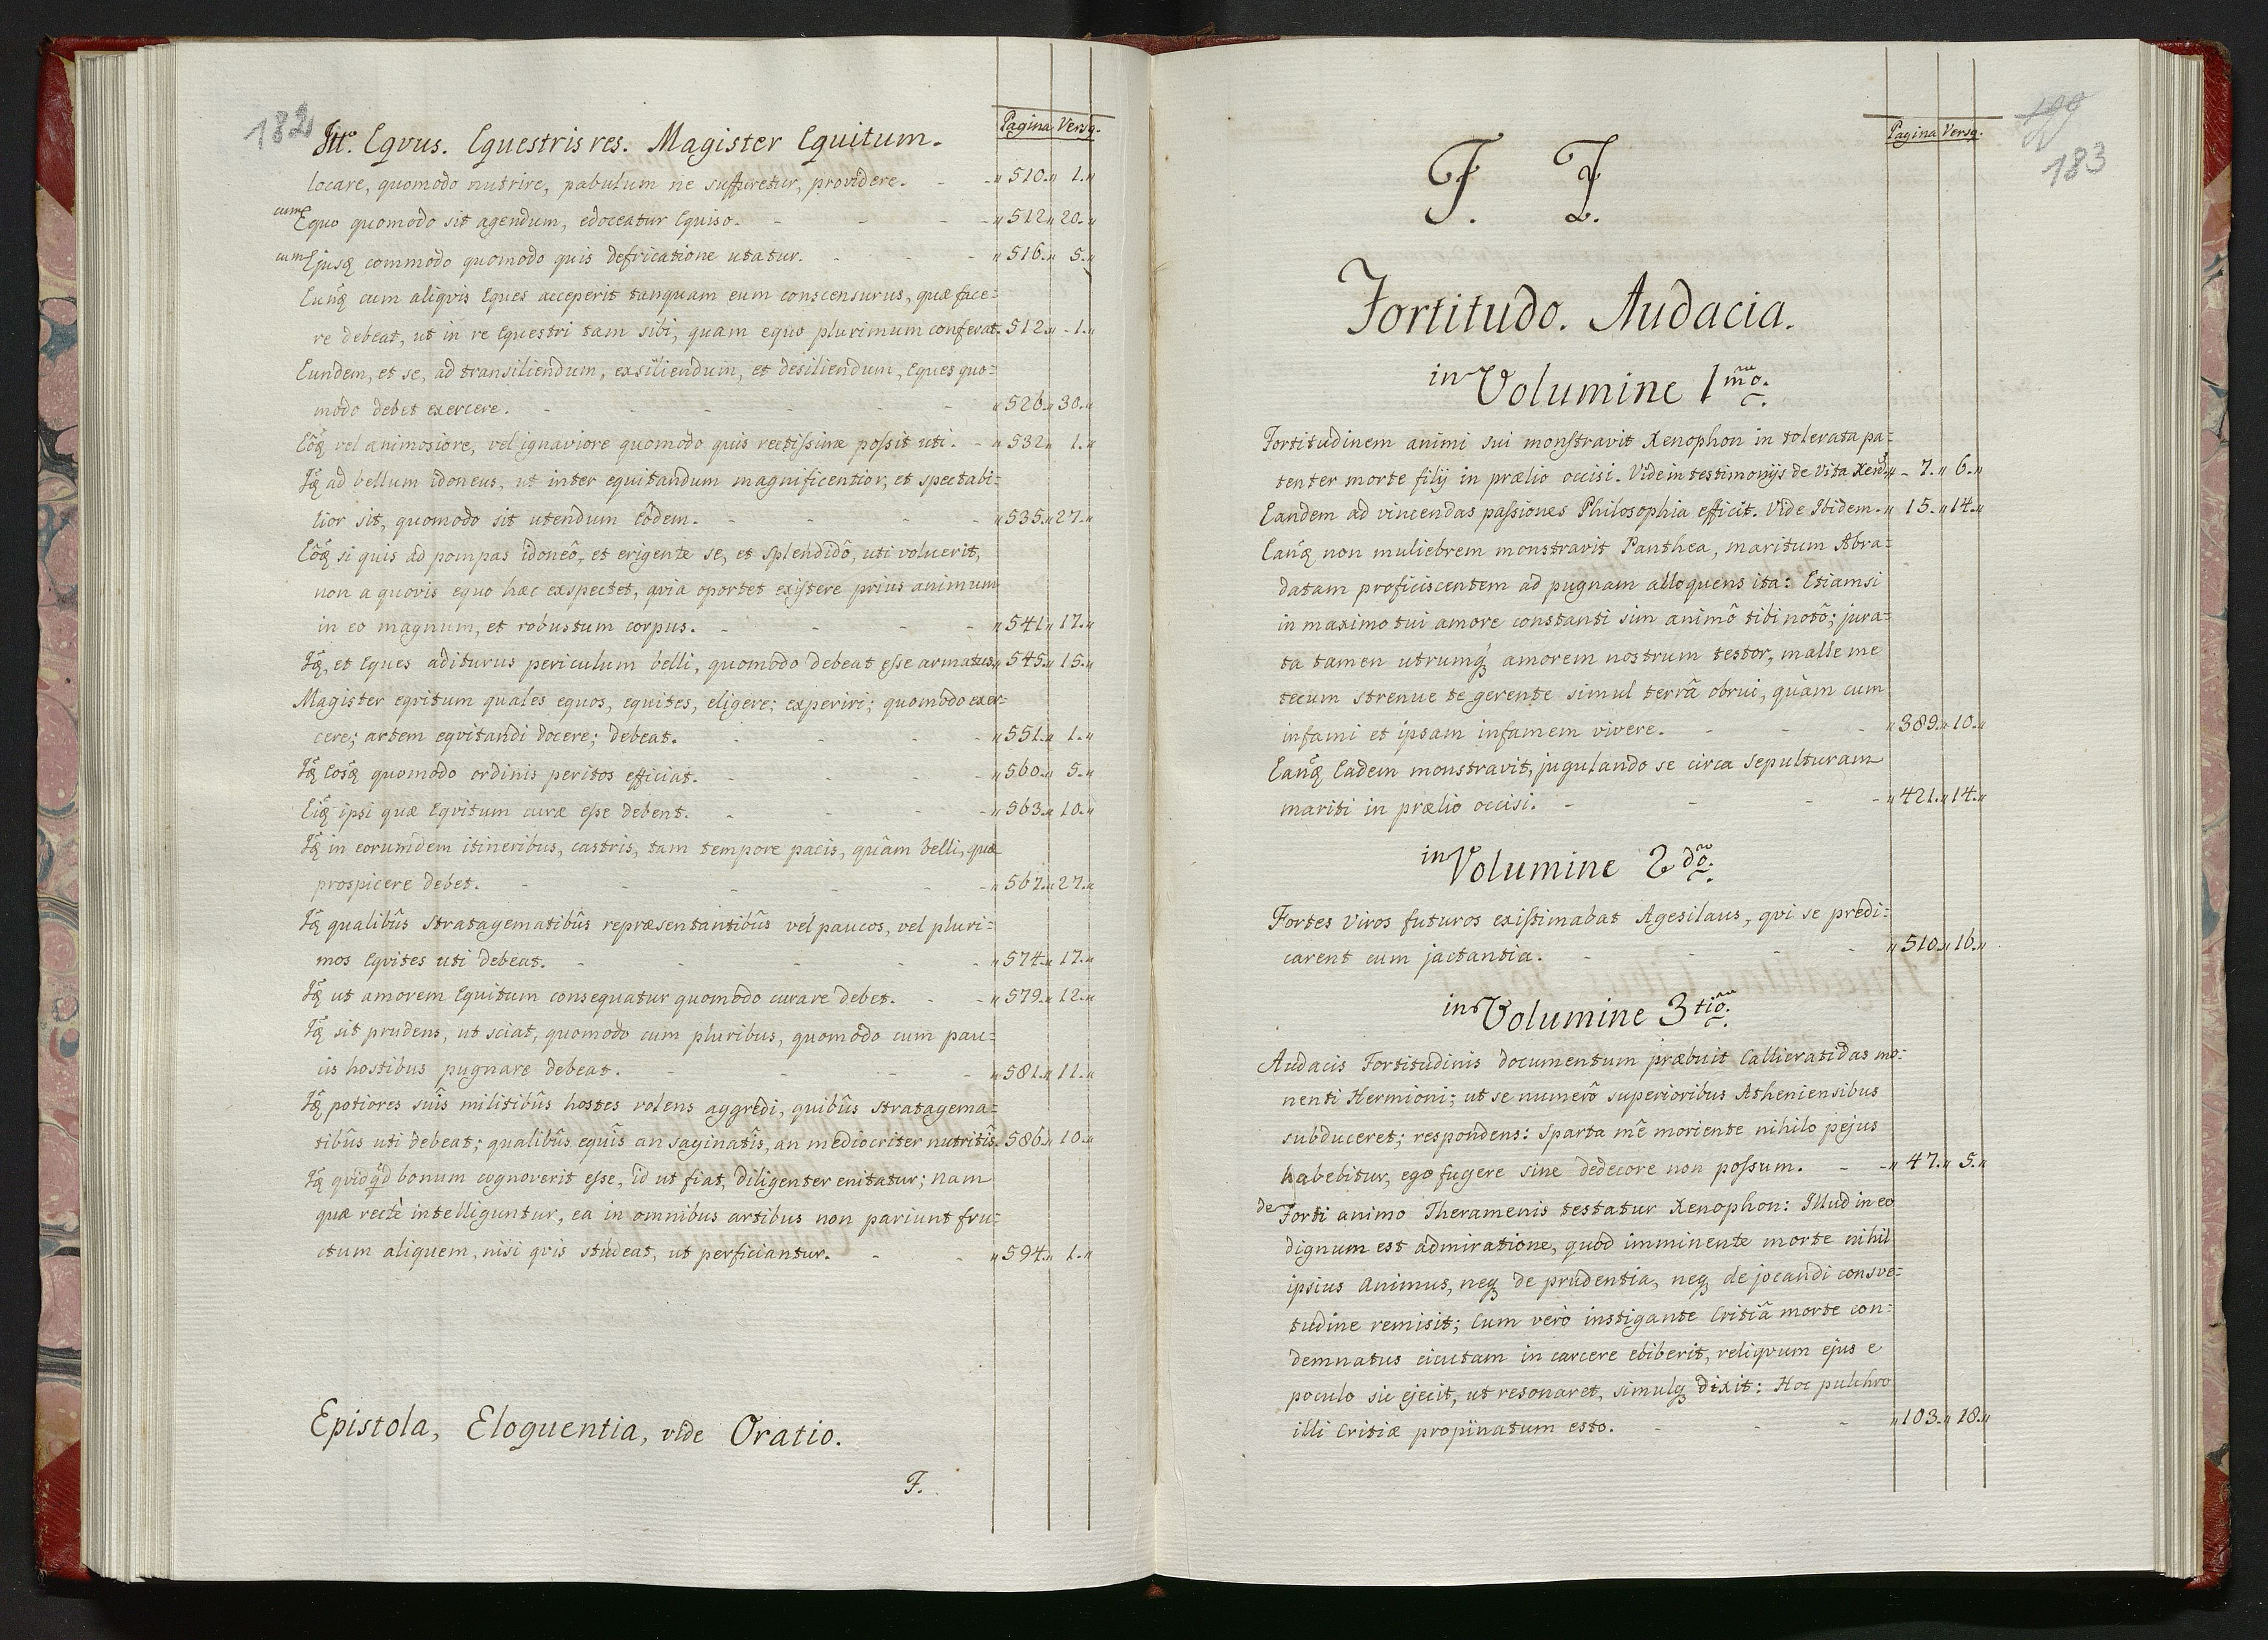 182
Itt. Eqvus. Equestris res. Magister Equitum.
Pagina Versq.
locare, quomodo nutrire, pabulum ne suffuretur, providere. - - „510.„ 1.„
cum Equo quomodo sit agendum, edoceatur Equiso. - - - „512.„ 20.„
cum Ejusq commodo quomodo quis defricatione utatur. - - - „516.„ 5.„
Eunq cum aliqvis Eques acceperit tanquam eum conscensurus, quæ face=
re debeat, ut in re Equestri tam sibi, quam equo plurimum conferat. 512.„ - 1.„
Eundem, et se, ad transiliendum, exsiliendum, et desiliendum, Eques quo=
modo debet exercere. - - - - - - „526.„ 30.„
Eôq vel animosiore, vel ignaviore quomodo quis rectissime possit uti. - „532.„ 1.„
Iq ad bellum idoneus, ut inter equitandum magnificentior, et spectabi=
lior sit, quomodo sit utendum Eôdem. - - - - „535.„ 27.„
Eôq si quis ad pompas idoneô, et erigente se, et splendidô, uti voluerit,
non a quovis equo hæc exspectet, qvia oportet existere prius animum
in eo magnum, et robustum corpus. - - - - „541.„ 17.„
Iq, et Eques aditurus periculum belli, quomodo debeat esse armatus. „545.„ 15.„
Magister eqvitum quales equos, equites, eligere; experiri; quomodo exer=
cere; artem eqvitandi docere; debeat. - - - - „551.„ 1.„
Iq Eosq quomodo ordinis peritos efficiat. - - - - „560.„ 5.„
Eiq ipsi quæ Eqvitum curæ esse debent. - - - - „563.„ 10.„
Iq in eorumdem itineribus, castris, tam tempore pacis, quàm belli, quæ
prospicere debet. - - - - - „567.„ 27.„
Iq qualibûs stratagematibûs repræsentantibûs vel paucos, vel pluri=
mos Eqvites uti debeat. - - - - - „574.„ 17.„
Iq ut amorem Equitum consequatur quomodo curare debet. - - „579.„ 12.„
Iq sit prudens, ut sciat, quomodo cum pluribus, quomodo cum pau=
cis hostibus pugnare debeat. - - - - „581.„ 11.„
Iq potiores suîs militibûs hostes volens aggredi, quibûs stratagema=
tibûs uti debeat; qualibûs equîs an saginatîs, an mediocriter nutritîs. 586.„ 10.„
Iq qvidqd bonum cognoverit esse, id ut fiat, diligenter enitatur; nam
quæ rectè intelliguntur, ea in omnibus artibus non pariunt fru=
ctum aliquem, nisi qvis studeat, ut perficiantur. - - „594.„ 1.„
Epistola, Eloquentia, vide Oratio.
F.
183
Pagina Versq.
F. F.
Fortitudo. Audacia.
in Volumine 1mo.
Fortitudinem animi sui monstravit Xenophon in tolerata pa=
tenter morte filij in prælio occisi. Vide in testimonijs de Vita Xen. „ - 7.„ 6.„
Eandem ad vincendas passiones Philosophia efficit. Vide Ibidem. „ 15.„ 14.„
Eanq non muliebrem monstravit Panthea, maritum Abra=
datam proficiscentem ad pugnam alloquens ita: Etiamsi
in maximo tui amore constanti sim animô tibi notô; jura=
ta tamen utrumq amorem nostrum testor, malle me
tecum strenue te gerente simul terrâ obrui, quàm cum
infami et ipsam infamem vivere. - - - „389.„ 10.„
Eanq Eadem monstravit, jugulando se circa sepulturam
mariti in prælio occisi. - - - - „421.„ 14.„
in Volumine 2do.
Fortes Viros futuros existimabat Agesilaus, qvi se prædi=
carent cum jactantia. - - - - „510.„ 16.„
in Volumine 3tio.
Audacis Fortitudinis documentum præbuit Callicratidas mo=
nenti Hermioni; ut se numerô superioribus Atheniensibus
subduceret; respondens: Sparta mê moriente nihilo pejus
habebitur, ego fugere sine dedecore non possum. - - „ 47.„ 5.„
de Forti animo Theramenis testatur Xenophon: Illud in eo
dignum est admiratione, quod imminente morte nihil
ipsius Animus, neq de prudentia, neq de jocandi consve=
tudine remisit; Cum verò instigante Critiâ morte con=
demnatus cicutam in carcere ebiberit, reliqvum ejus e
poculo sic ejecit, ut resonaret, simulq dixit: Hoc pulchro
illi Critiæ propinatum esto. - - - „103.„ 18.„